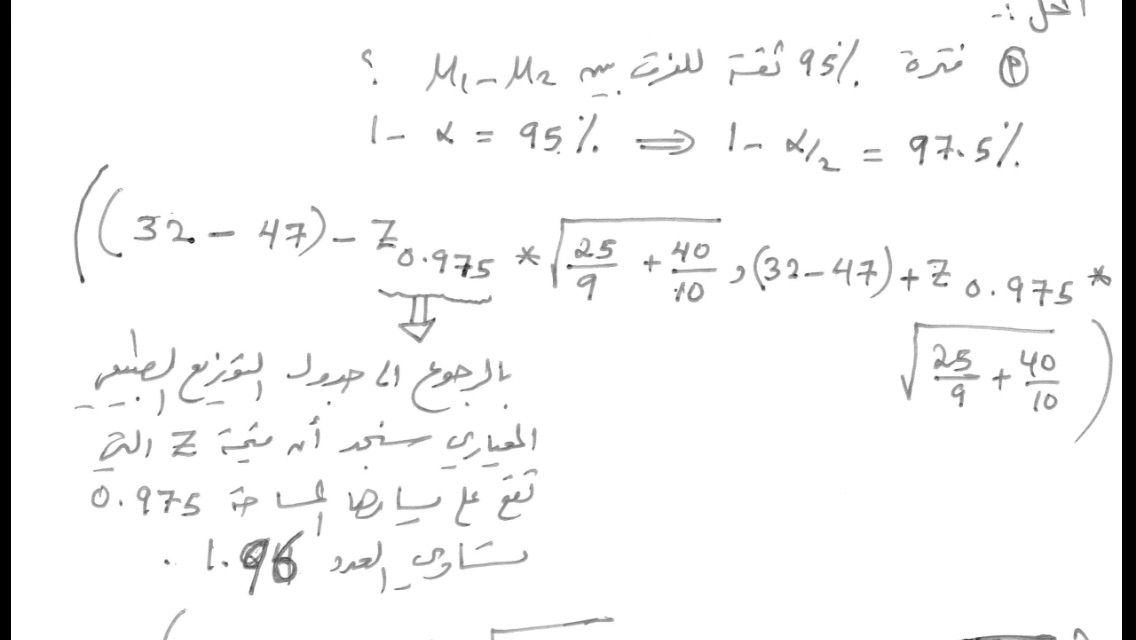 الحل :-
(أ) فترة 95% ثقة للفرق بين μ1-μ2 ؟
1 - α = 95% ⟹ 1 - α/2 = 97.5%
((32 - 47) - Z0.975 * √(25/9 + 40/10) , (32 - 47) + Z0.975 *
√(25/9 + 40/10))
بالرجوع الى جدول التوزيع الطبيعي
المعياري سنجد أن قيمة Z التي
تقع على يسارها المساحة 0.975
تساوي العدد 1.96 .